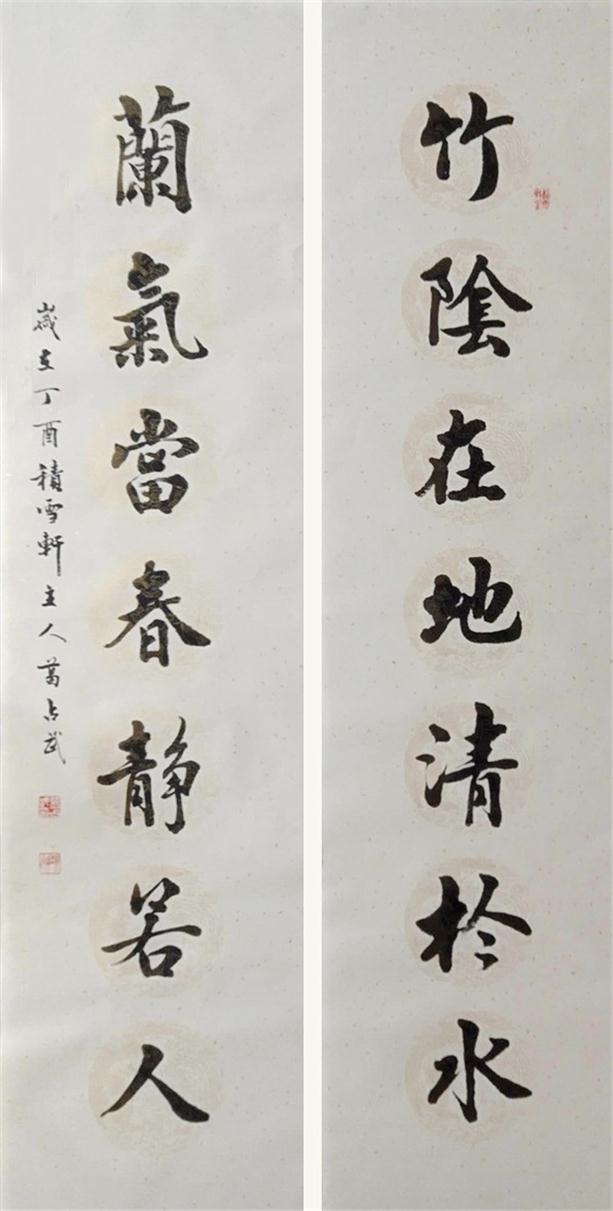 竹陰在地清於水
蘭氣當春静若人
歲在丁酉積雪軒主人葛占武